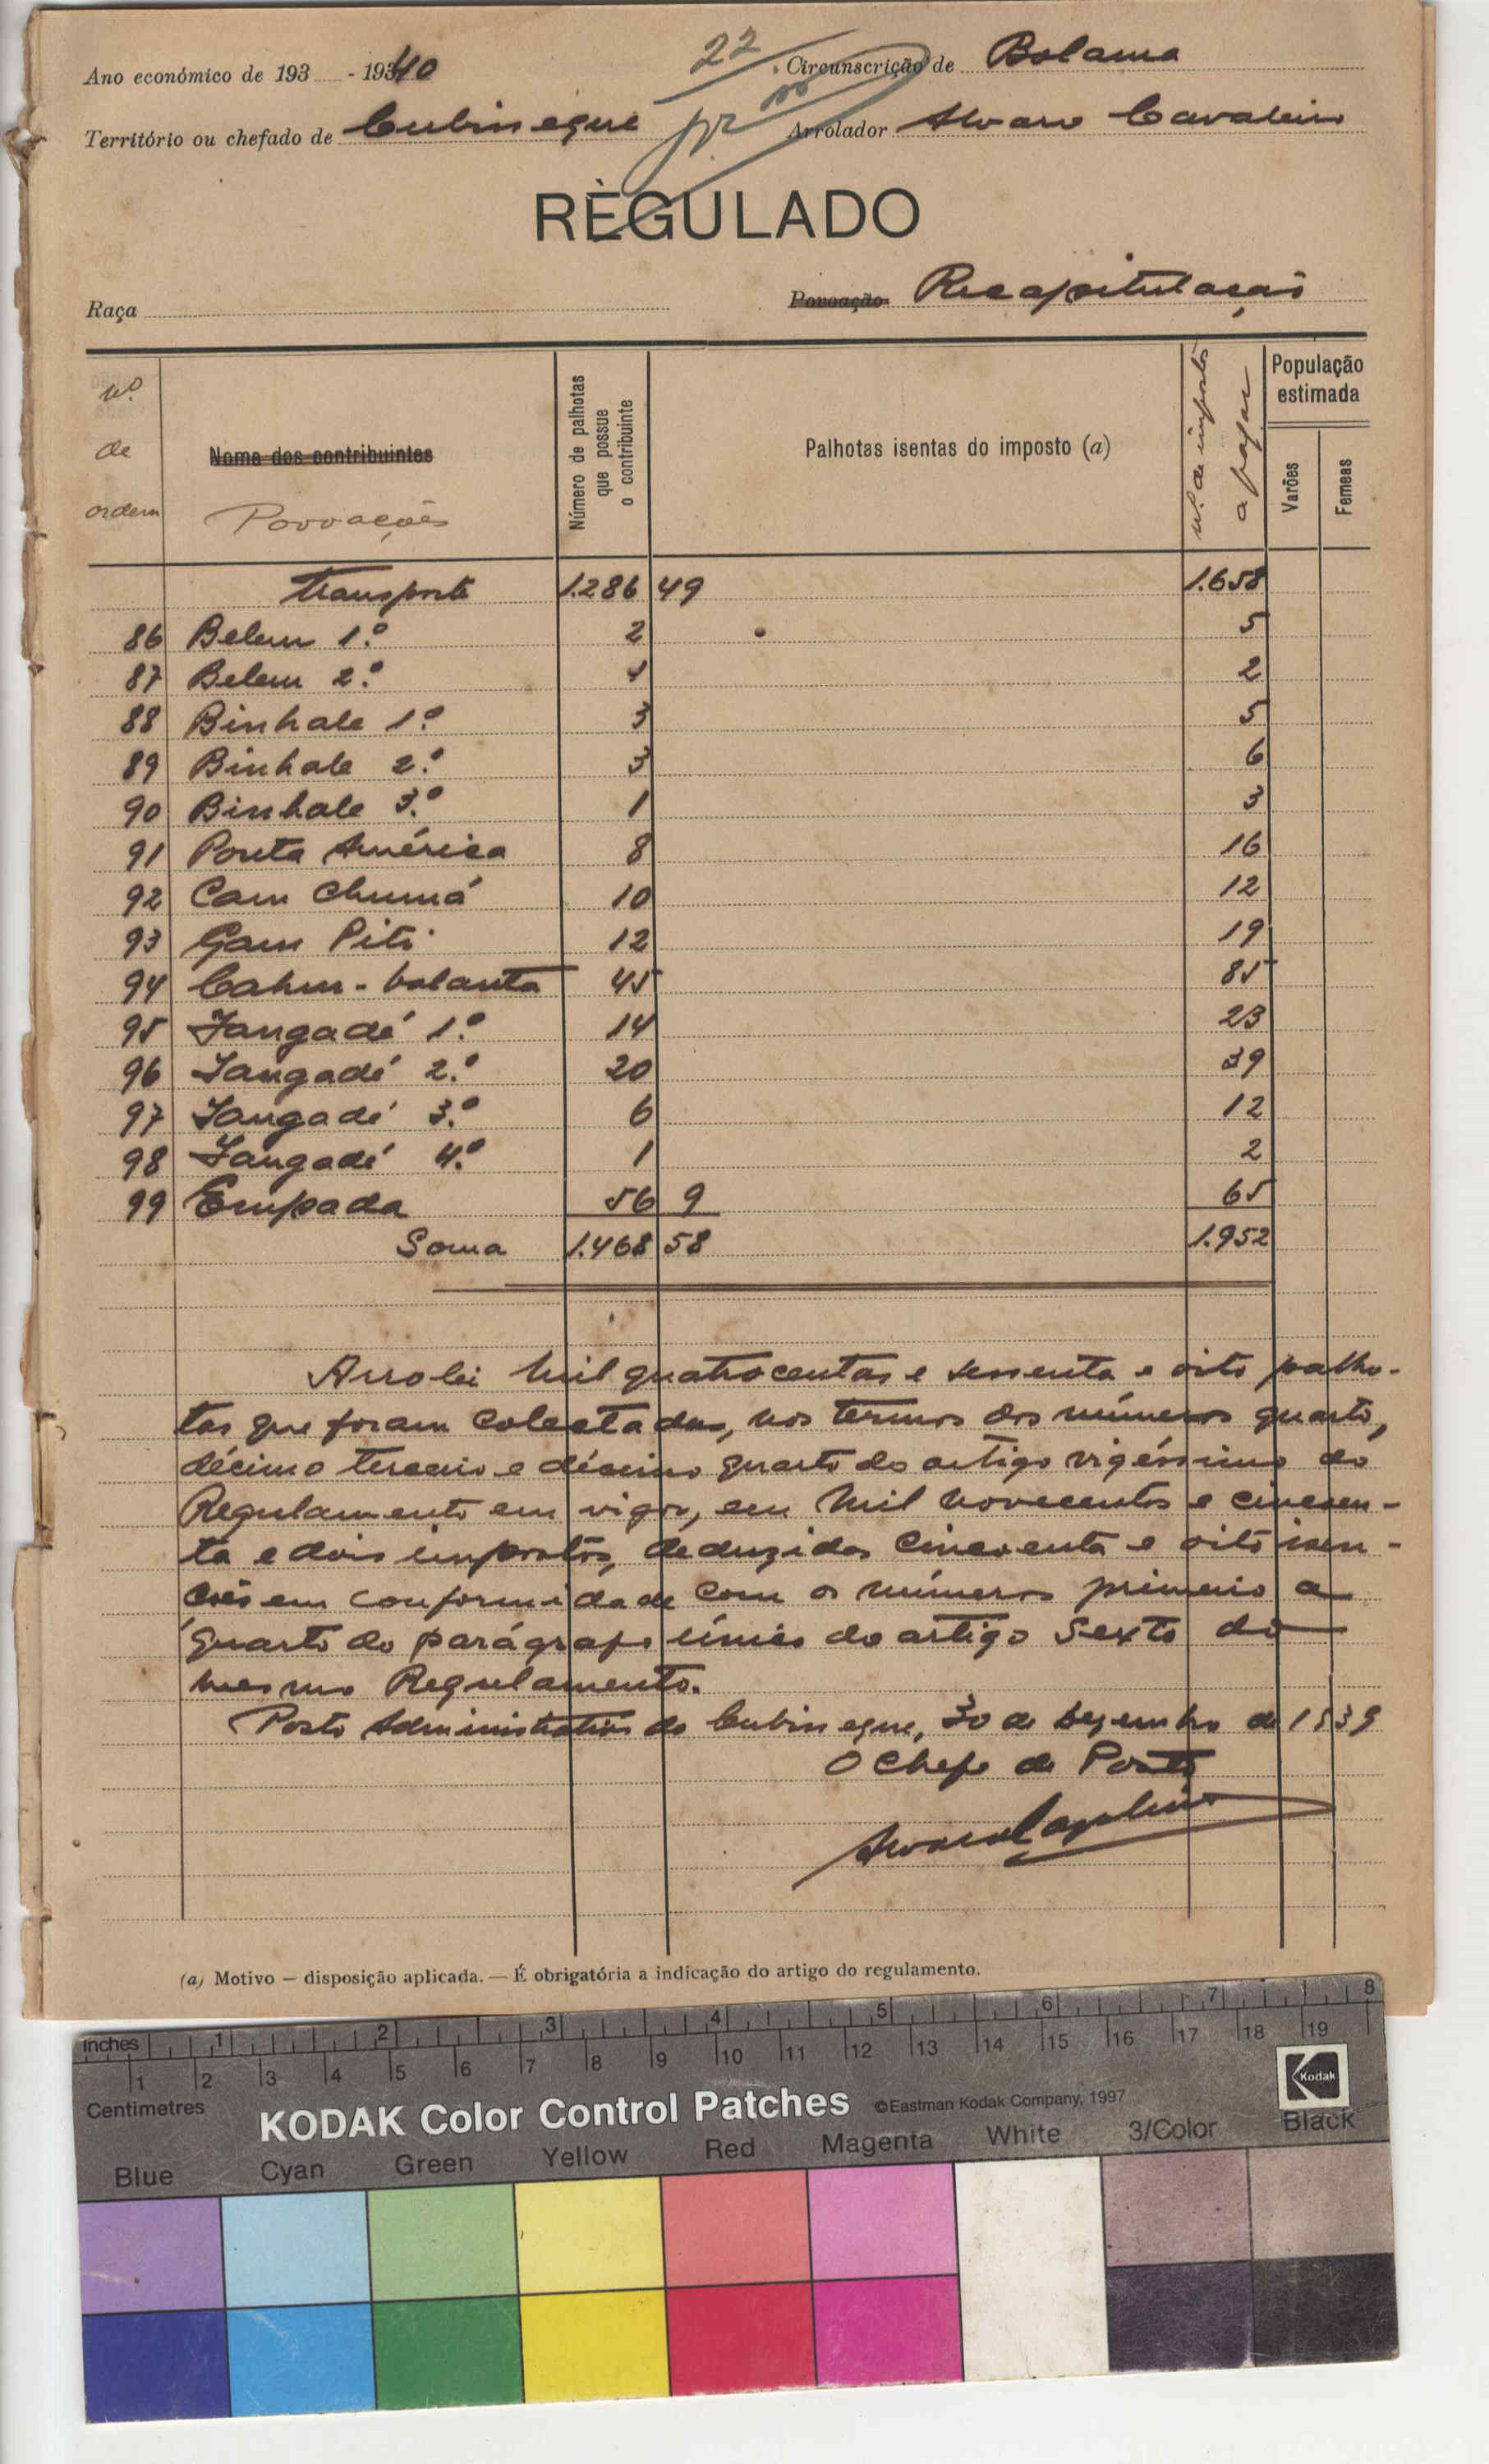 22
Ano económico de 193 - 1940 Circunscrição de Bolama
Território ou chefado de Cubisseque Arrolador Alvaro Cavaleiro
REGULADO
Raça Povoação Recapitulação
nº de ordem Nome dos contribuintes Povoações Número de palhotas que possue o contribuinte Palhotas isentas do imposto (a) nº de impostos a pagar População estimada Varões Femeas
Transporte 1.286 49 1.658
86 Belem 1.º 2 5
87 Belem 2.º 1 2
88 Binhale 1º 3 5
89 Binhale 2.º 3 6
90 Binhale 3.º 1 3
91 Ponta América 8 16
92 Cam Chumá 10 12
93 Gam Piti 12 19
94 Cahur-balanta 45 85
95 Jangadé 1.º 14 23
96 Jangadé 2.º 20 39
97 Jangadé 3.º 6 12
98 Jangadé 4.º 1 2
99 Empada 56 9 65
Soma 1.468 58 1.952
Arrolei mil quatrocentas e sessenta e oito palho-
tas que foram colectadas, nos termos dos números quarto,
décimo terceiro e décimo quarto do artigo vigéssimo do
Regulamento em vigor, em mil novecentos e cincoen-
ta e dois impostos, deduzidas cincoenta e oito isen-
ções em conformidade com os números primeiro a
quarto do parágrafo único do artigo sexto do
mesmo Regulamento.
Posto Administrativo de Cubisseque, 30 de Dezembro de 1939
O Chefe de Posto
(a) Motivo — disposição aplicada. — É obrigatória a indicação do artigo do regulamento.
inches 1 2 3 4 5 6 7 8
1 2 3 4 5 6 7 8 9 10 11 12 13 14 15 16 17 18 19
Centimetres
KODAK Color Control Patches ©Eastman Kodak Company, 1997 Kodak
Blue Cyan Green Yellow Red Magenta White 3/Color Black